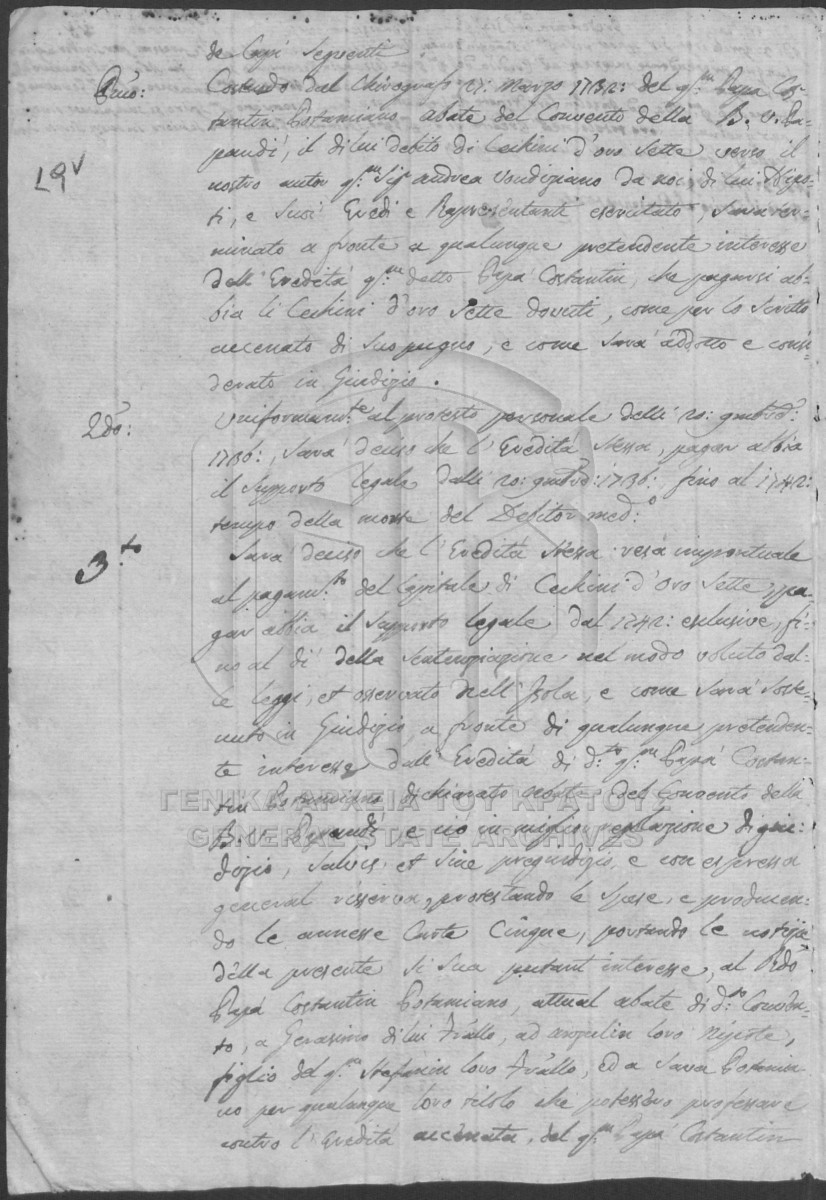 de Capi Seguenti
Pmo:
Costando dal Chirografo 27: Marzo 1732: del qm Papà Cos-
tantin Potamiano Abate del Convento della B. V. Pa-
pandi, il di lui debito di Cechini d'oro Sette verso il
L9v
nostro autor qm Sigr Andrea Vondiziano da noi, di lui Nipo-
ti, e Suoi Eredi e Rapresentanti esercitato, Sarà ter-
minato a fronte a qualunque pretendente interesse
dell'Eredità qm detto Papà Costantin, che pagarsi ab-
bia li Cechini d'oro Sette dovuti, come per lo Scritto
accenato di Suo pugno, e come Sarà addotto e consi-
derato in Giudizio.
2do:
Uniformamte al protesto personale delli 20: 
1736:, Sarà deciso che l'Eredità Stessa, pagar abbia
il Supporto legale dalli 20: 1736: fino al 1742:
tempo della morte del Debitor medo
3to
Sarà deciso che l'Eredità Stessa impontuale
al pagamto del Capitale di Cechini d'Oro Sette, pa-
gar abbia il Supporto legale dal 1742: exclusive, fi-
no al dì della Sentenziazione nel modo voluto dal-
le leggi, et osservato nell'Isola, e come Sarà Soste-
nuto in Giudizio, a fronte di qualunque pretenden-
te interesse dall'Eredità di dto qm Papà Costan-
tin Potamiano dichiarato del Convento della
B. V. Papandi e ciò in miglior di giu-
dizio, Salvis et Sine pregiudizio, e con espressa
general risserva, protestando le Spese, e producen-
do le annesse Carte Cinque, portando le notizie
della presente Si Sua putant interesse, al Rdo
Papà Costantin Potamiano, attual abate di dto Conven-
to, a Gerasimo di lui Fratello, ad loro Nipote,
figlio del qm Stefanin loro Fratello, ed a Sava Potamia-
no per qualunque loro titolo che potessero professare
contro l'Eredità accenata, del qm Papà Costantin
ΓΕΝΙΚΑ ΑΡΧΕΙΑ ΤΟΥ ΚΡΑΤΟΥΣ
GENERAL STATE ARCHIVES